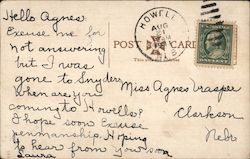 Hello Agnes:
Excuse me for
not answering
but I was
gone to Snyder
when are you
coming to Howells?
I hope soon Excuse
penmanship. Hoping
to hear from you soon
Laura
HOWELL
AUG
POST CARD
Miss Agnes Vrasper
Clarkson
Nebr